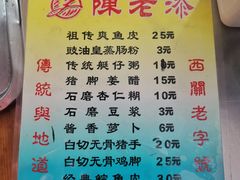 陳老添
祖传爽鱼皮 25元
豉油皇蒸肠粉 3元
传统艇仔粥 10元
猪脚姜醋 15元
石磨杏仁糊 10元
石磨豆浆 3元
酱香萝卜 6元
白切无骨猪手 20元
白切无骨鸡脚 25元
傳統與地道
西關老字號